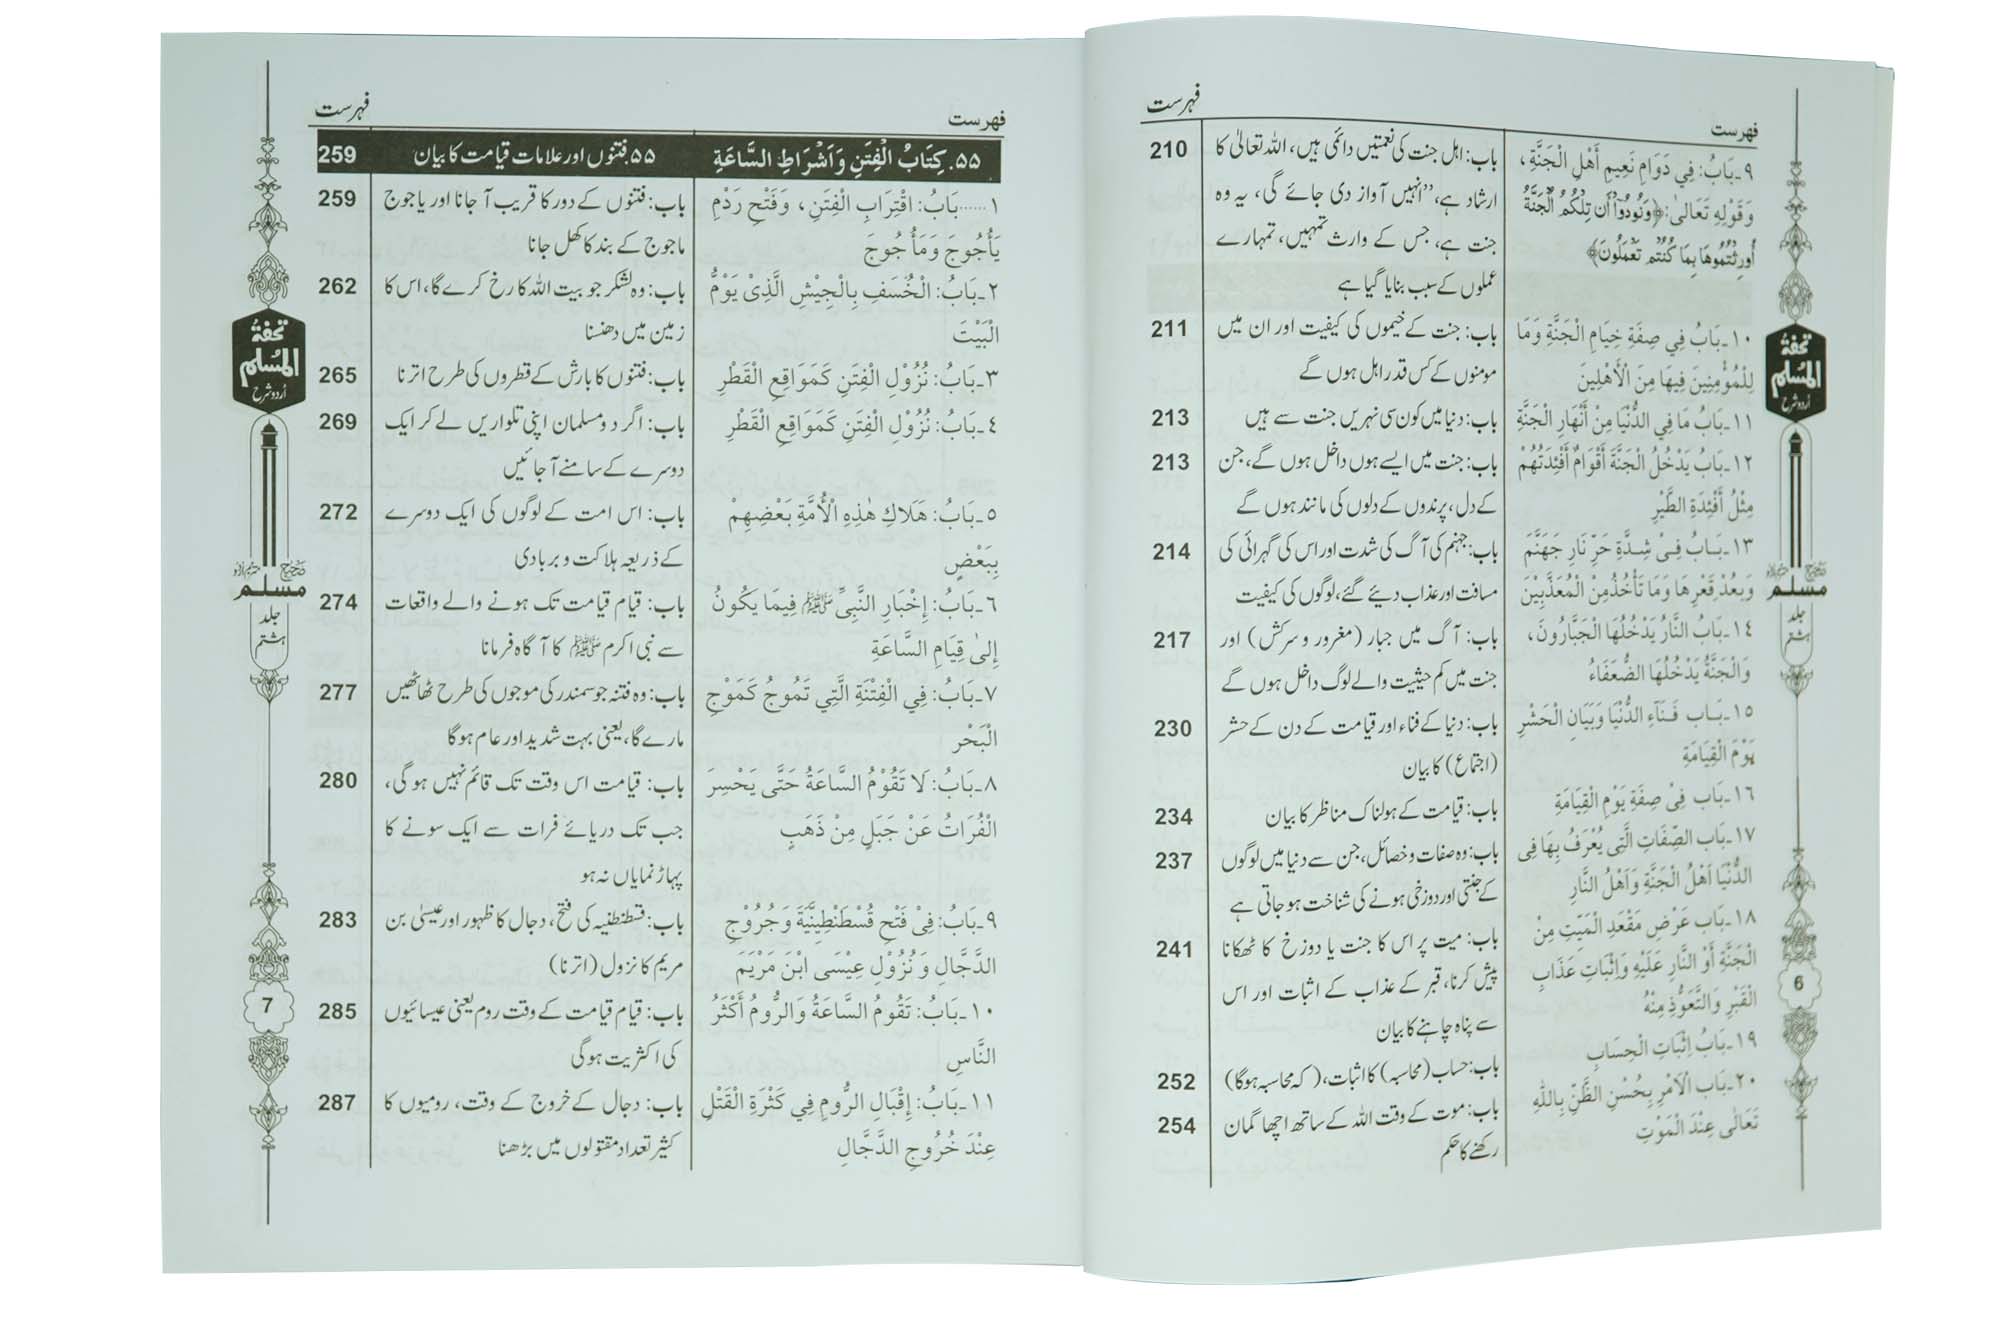 فهرست
فہرست
٩۔بَابُ: فِي دَوَامِ نَعِيمِ أَهْلِ الْجَنَّةِ،
وَقَوْلِهِ تَعَالىٰ: ﴿وَنُودُوٓاْ أَن تِلْكُمُ الْجَنَّةُ
أُورِثْتُمُوهَا بِمَا كُنتُمْ تَعْمَلُونَ﴾
باب: اہل جنت کی نعمتیں دائمی ہیں، اللہ تعالیٰ کا
ارشاد ہے، ’’انہیں آواز دی جائے گی، یہ وہ
جنت ہے، جس کے وارث تمہیں، تمہارے
عملوں کے سبب بنایا گیا ہے
210
١٠۔بَابُ فِي صِفَةِ خِيَامِ الْجَنَّةِ وَمَا
لِلْمُؤْمِنِينَ فِيهَا مِنَ الْأَهْلِينَ
باب: جنت کے خیموں کی کیفیت اور ان میں
مومنوں کے کس قدر اہل ہوں گے
211
١١۔بَابُ مَا فِي الدُّنْيَا مِنْ أَنْهَارِ الْجَنَّةِ
باب: دنیا میں کون سی نہریں جنت سے ہیں
213
١٢۔بَابُ يَدْخُلُ الْجَنَّةَ أَقْوَامٌ أَفْئِدَتُهُمْ
مِثْلُ أَفْئِدَةِ الطَّيْرِ
باب: جنت میں ایسے ہوں داخل ہوں گے، جن
کے دل، پرندوں کے دلوں کی مانند ہوں گے
213
١٣۔بَابُ فِيْ شِدَّةِ حَرِّ نَارِ جَهَنَّمَ
وَبُعْدِ قَعْرِهَا وَمَا تَأْخُذُ مِنْ الْمُعَذَّبِيْنَ
باب: جہنم کی آگ کی شدت اور اس کی گہرائی کی
مسافت اور عذاب دیئے گئے، لوگوں کی کیفیت
214
١٤۔بَابُ النَّارُ يَدْخُلُهَا الْجَبَّارُونَ،
وَالْجَنَّةُ يَدْخُلُهَا الضُّعَفَاءُ
باب: آگ میں جبار (مغرور و سرکش) اور
جنت میں کم حیثیت والے لوگ داخل ہوں گے
217
١٥۔بَاب فَنَآءِ الدُّنْيَا وَبَيَانِ الْحَشْرِ
يَوْمَ الْقِيَامَةِ
باب: دنیا کے فناء اور قیامت کے دن کے حشر
(اجتماع) کا بیان
230
١٦۔بَاب فِيْ صِفَةِ يَوْمِ الْقِيَامَةِ
باب: قیامت کے ہولناک مناظر کا بیان
234
١٧۔بَاب الصِّفَاتِ الَّتِي يُعْرَفُ بِهَا فِي
الدُّنْيَا اَهْلُ الْجَنَّةِ وَاَهْلُ النَّارِ
باب: وہ صفات و خصائل، جن سے دنیا میں لوگوں
کے جنتی اور دوزخی ہونے کی شناخت ہو جاتی ہے
237
١٨۔بَاب عَرْضِ مَقْعَدِ الْمَيِّتِ مِنْ
الْجَنَّةِ أَوْ النَّارِ عَلَيْهِ وَإِثْبَاتِ عَذَابِ
الْقَبْرِ وَالتَّعَوُّذِ مِنْهُ
باب: میت پر اس کا جنت یا دوزخ کا ٹھکانا
پیش کرنا، قبر کے عذاب کے اثبات اور اس
سے پناہ چاہنے کا بیان
241
١٩۔بَابُ اِثْبَاتِ الْحِسَابِ
باب: حساب (محاسبہ) کا اثبات، (کہ محاسبہ ہوگا)
252
٢٠۔بَاب الْاَمْرِ بِحُسْنِ الظَّنِّ بِاللهِ
تَعَالٰى عِنْدَ الْمَوْتِ
باب: موت کے وقت اللہ کے ساتھ اچھا گمان
رکھنے کا حکم
254
تحفۃ
المسلم
اُردو شرح
صحیح
مسلم
جلد
ہشتم
6
فهرست
فہرست
٥٥۔كِتَابُ الْفِتَنِ وَاَشْرَاطِ السَّاعَةِ
٥٥۔فتنوں اور علامات قیامت کا بیان
259
١......بَابُ: اقْتِرَابِ الْفِتَنِ، وَفَتْحِ رَدْمِ
يَأْجُوجَ وَمَأْجُوجَ
باب: فتنوں کے دور کا قریب آ جانا اور یاجوج
ماجوج کے بند کا کھل جانا
259
٢۔بَابُ: الْخَسَفِ بِالْجِيْشِ الَّذِىْ يَوْمُّ
الْبَيْتَ
باب: وہ لشکر جو بیت اللہ کا رخ کرے گا، اس کا
زمین میں دھنسنا
262
٣۔بَابُ: نُزُوْلِ الْفِتَنِ كَمَوَاقِعِ الْقَطْرِ
باب: فتنوں کا بارش کے قطروں کی طرح اترنا
265
٤۔بَابُ: نُزُوْلِ الْفِتَنِ كَمَوَاقِعِ الْقَطْرِ
باب: اگر دو مسلمان اپنی تلواریں لے کر ایک
دوسرے کے سامنے آ جائیں
269
٥۔بَابُ: هَلَاكِ هٰذِهِ الْأُمَّةِ بَعْضِهِمْ
بِبَعْضٍ
باب: اس امت کے لوگوں کی ایک دوسرے
کے ذریعہ ہلاکت و بربادی
272
٦۔بَابُ: إِخْبَارِ النَّبِيِّ ﷺ فِيمَا يَكُونُ
إِلىٰ قِيَامِ السَّاعَةِ
باب: قیام قیامت تک ہونے والے واقعات
سے نبی اکرم ﷺ کا آگاہ فرمانا
274
٧۔بَابُ: فِي الْفِتْنَةِ الَّتِي تَمُوجُ كَمَوْجِ
الْبَحْرِ
باب: وہ فتنہ جو سمندر کی موجوں کی طرح ٹھاٹھیں
مارے گا، یعنی بہت شدید اور عام ہوگا
277
٨۔بَابُ: لَا تَقُوْمُ السَّاعَةُ حَتَّى يَحْسِرَ
الْفُرَاتُ عَنْ جَبَلٍ مِنْ ذَهَبٍ
باب: قیامت اس وقت تک قائم نہیں ہو گی،
جب تک دریائے فرات سے ایک سونے کا
پہاڑ نمایاں نہ ہو
280
٩۔بَابُ: فِيْ فَتْحِ قُسْطَنْطِينِيَّةَ وَخُرُوْجِ
الدَّجَّالِ وَنُزُوْلِ عِيْسَى ابْنَ مَرْيَمَ
باب: قسطنطنیہ کی فتح، دجال کا ظہور اور عیسیٰ بن
مریم کا نزول (اترنا)
283
١٠۔بَابُ: تَقُوْمُ السَّاعَةُ وَالرُّومُ أَكْثَرُ
النَّاسِ
باب: قیام قیامت کے وقت روم یعنی عیسائیوں
کی اکثریت ہوگی
285
١١۔بَابُ: إِقْبَالِ الرُّومِ فِي كَثْرَةِ الْقَتْلِ
عِنْدَ خُرُوجِ الدَّجَّالِ
باب: دجال کے خروج کے وقت، رومیوں کا
کثیر تعداد مقتولوں میں بڑھنا
287
تحفۃ
المسلم
اُردو شرح
صحیح
مسلم
جلد
ہشتم
7